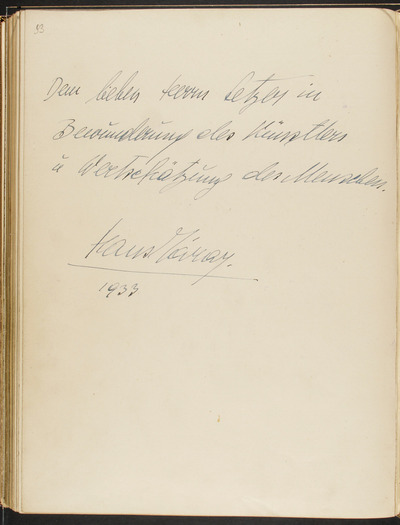 93
Dem lieben Herrn Setzer in
Bewunderung des Künstlers
u Wertschätzung des Menschen.
Hans Járay.
1933